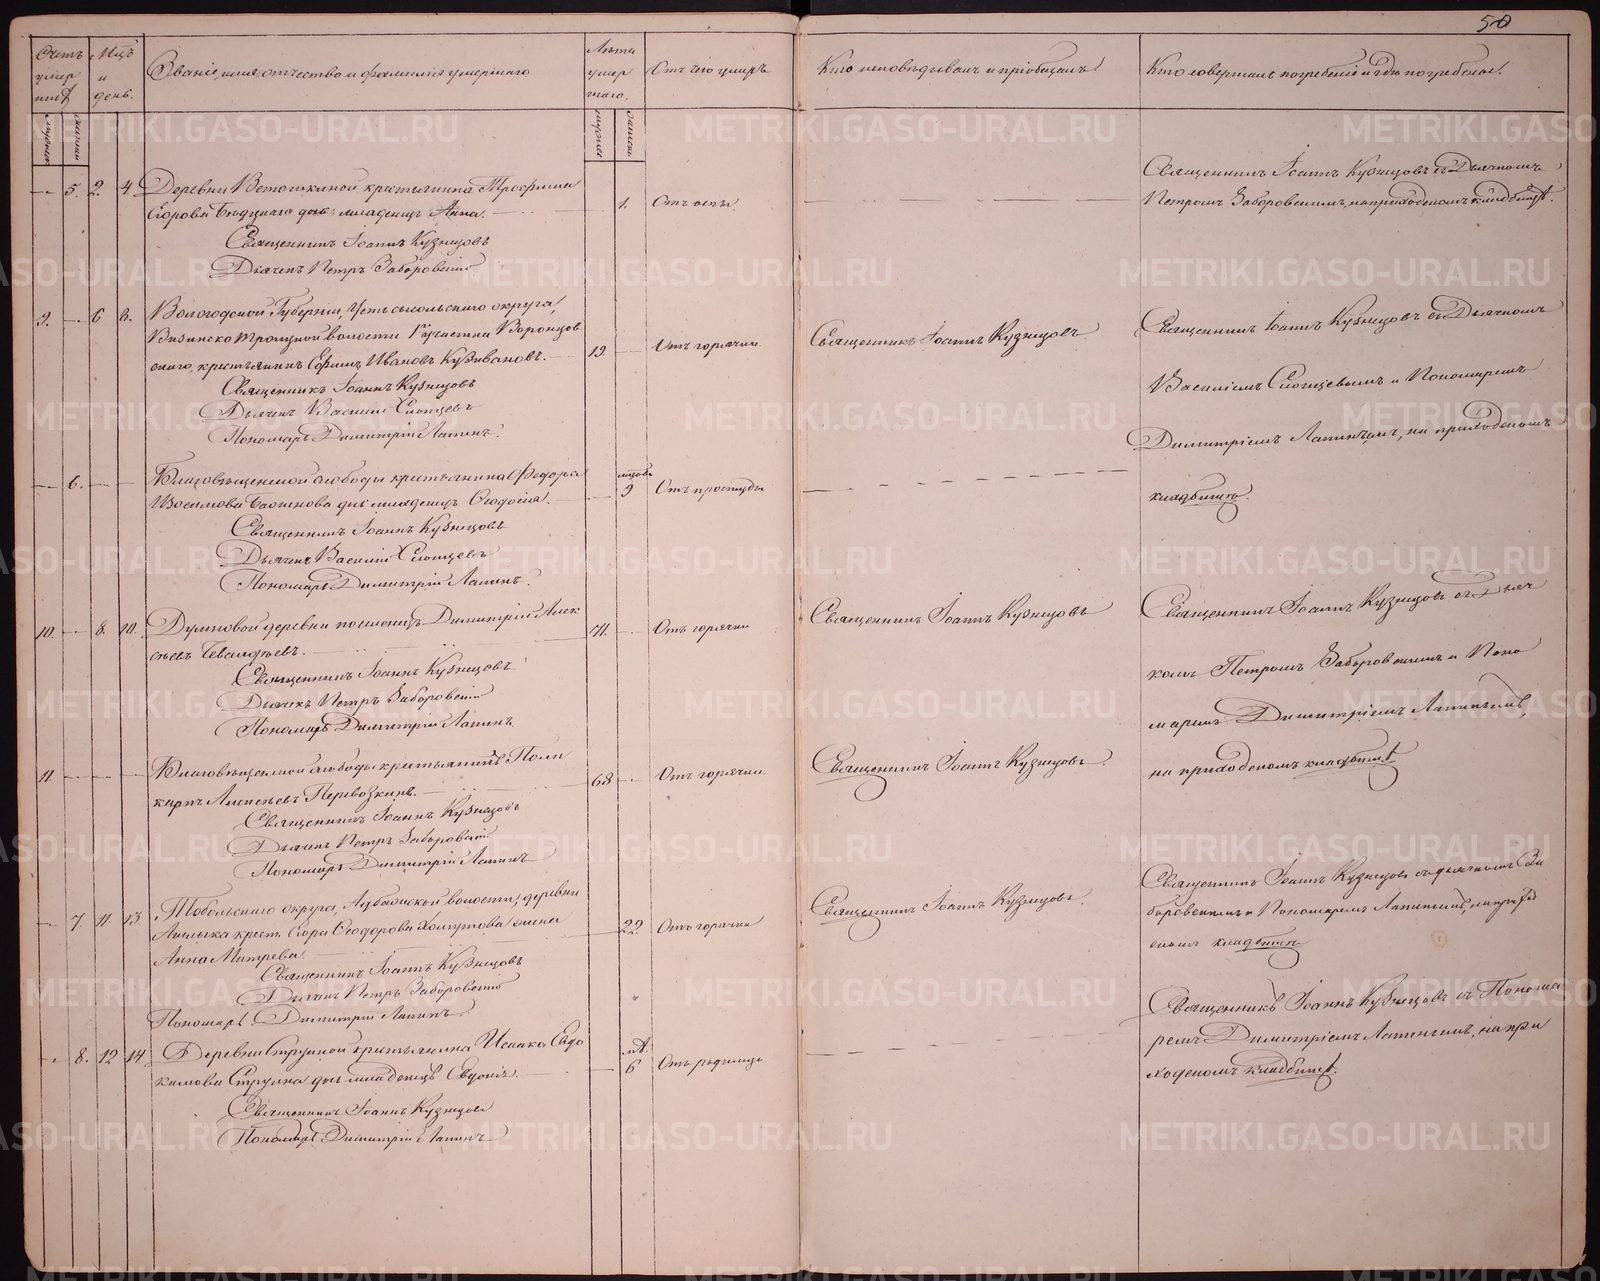 50
Счетъ умершихъ
Мцъ и день.
Званіе, имя, отчество и фамилія умершаго
Лѣта умершаго.
Отъ чего умеръ
Кто исповѣдывалъ и пріобщалъ.
Кто совершалъ погребеніе и гдѣ погребены.
мужска
женска
мужска
женска
5. 2. 4.
Деревни Ветошкиной крестьянина Трофима
Егорова дочь младенецъ Анна.
1.
Отъ оспы.
Священникъ Іоаннъ Кузнецовъ съ Дьячкомъ
Петромъ Заборовскимъ, на приходскомъ кладбищѣ.
Священникъ Іоаннъ Кузнецовъ
Дьячекъ Петръ Заборовскій
9. 6 8.
Вологодской Губерніи, Усть сысольскаго округа,
волости участка
крестьянинъ Ефимъ Ивановъ
19.
Отъ горячки
Священникъ Іоаннъ Кузнецовъ
Священникъ Іоаннъ Кузнецовъ съ Дьячкомъ
Василіемъ Словцевымъ и Пономаремъ
Димитріемъ Лапинымъ, на приходскомъ
кладбищѣ.
Священникъ Іоаннъ Кузнецовъ
Дьячекъ Василій Словцевъ
Пономарь Димитрій Лапинъ.
6.
Благовѣщенской слободы крестьянина Федора
дчь младенецъ Феодосія.
9
Отъ простуды
Священникъ Іоаннъ Кузнецовъ
Дьячекъ Василій Словцевъ
Пономарь Димитрій Лапинъ.
10. 8. 10.
деревни поселенецъ Димитрій Алек
сѣевъ
71.
Отъ горячки
Священникъ Іоаннъ Кузнецовъ
Священникъ Іоаннъ Кузнецовъ съ Дьяч
комъ Петромъ Заборовскимъ и Поно
маремъ Димитріемъ Лапинымъ,
на приходскомъ кладбищѣ
Священникъ Іоаннъ Кузнецовъ
Дьячекъ Петръ Заборовскій
Пономарь Димитрій Лапинъ
11.
Благовѣщенской слободы крестьянинъ Поли
карпъ Алексѣевъ Перевозкинъ.
68
Отъ горячки
Священникъ Іоаннъ Кузнецовъ
Священникъ Іоаннъ Кузнецовъ
Дьячекъ Петръ Заборовскій
Пономарь Димитрій Лапинъ
7. 11. 13
Тобольскаго округа, волости, деревни
крест. Феодорова Хомутова жена
Анна Митрева.
22
Отъ горячки
Священникъ Іоаннъ Кузнецовъ.
Священникъ Іоаннъ Кузнецовъ съ дьячкомъ За
боровскимъ и Пономаремъ Лапинымъ, на прихо
скомъ кладбищѣ
Священникъ Іоаннъ Кузнецовъ
Дьячекъ Петръ Заборовскій
Пономарь Димитрій Лапинъ.
8. 12 14
Деревни Струиной крестьянина Исаака Евдо
кимова Струина дчь младенецъ Евдокія.
6
Отъ родимца
Священникъ Іоаннъ Кузнецовъ съ Понома
ремъ Димитріемъ Лапинымъ, на при
ходскомъ кладбищѣ.
Священникъ Іоаннъ Кузнецовъ
Пономарь Димитрій Лапинъ
METRIKI.GASO-URAL.RU